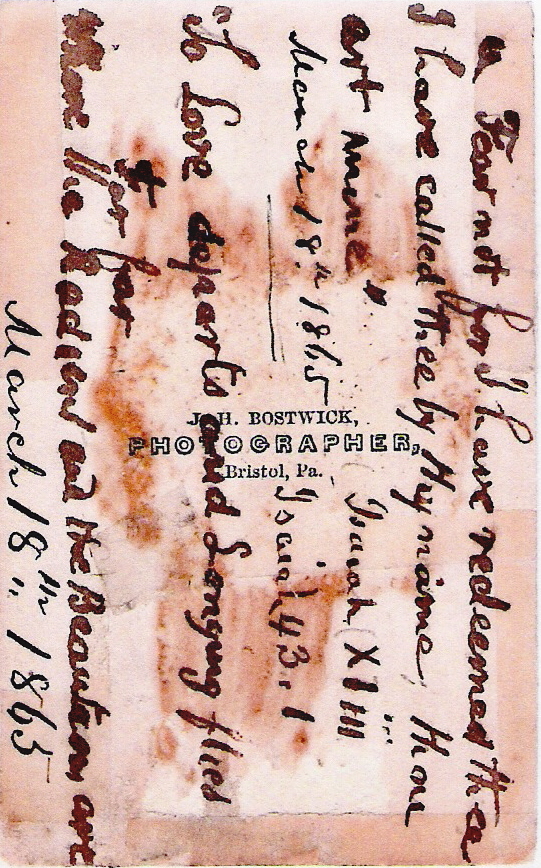 " Fear not for I have redeemed thee
I have called thee by thy name, thou
art mine " Isaiah XLiii
March 18th 1865 Isaiah 43.1
Love departs and Longing flies
far
Where the Radient and the Beauteous are
March 18th 1865
J. H. BOSTWICK,
PHOTOGRAPHER,
Bristol, Pa.